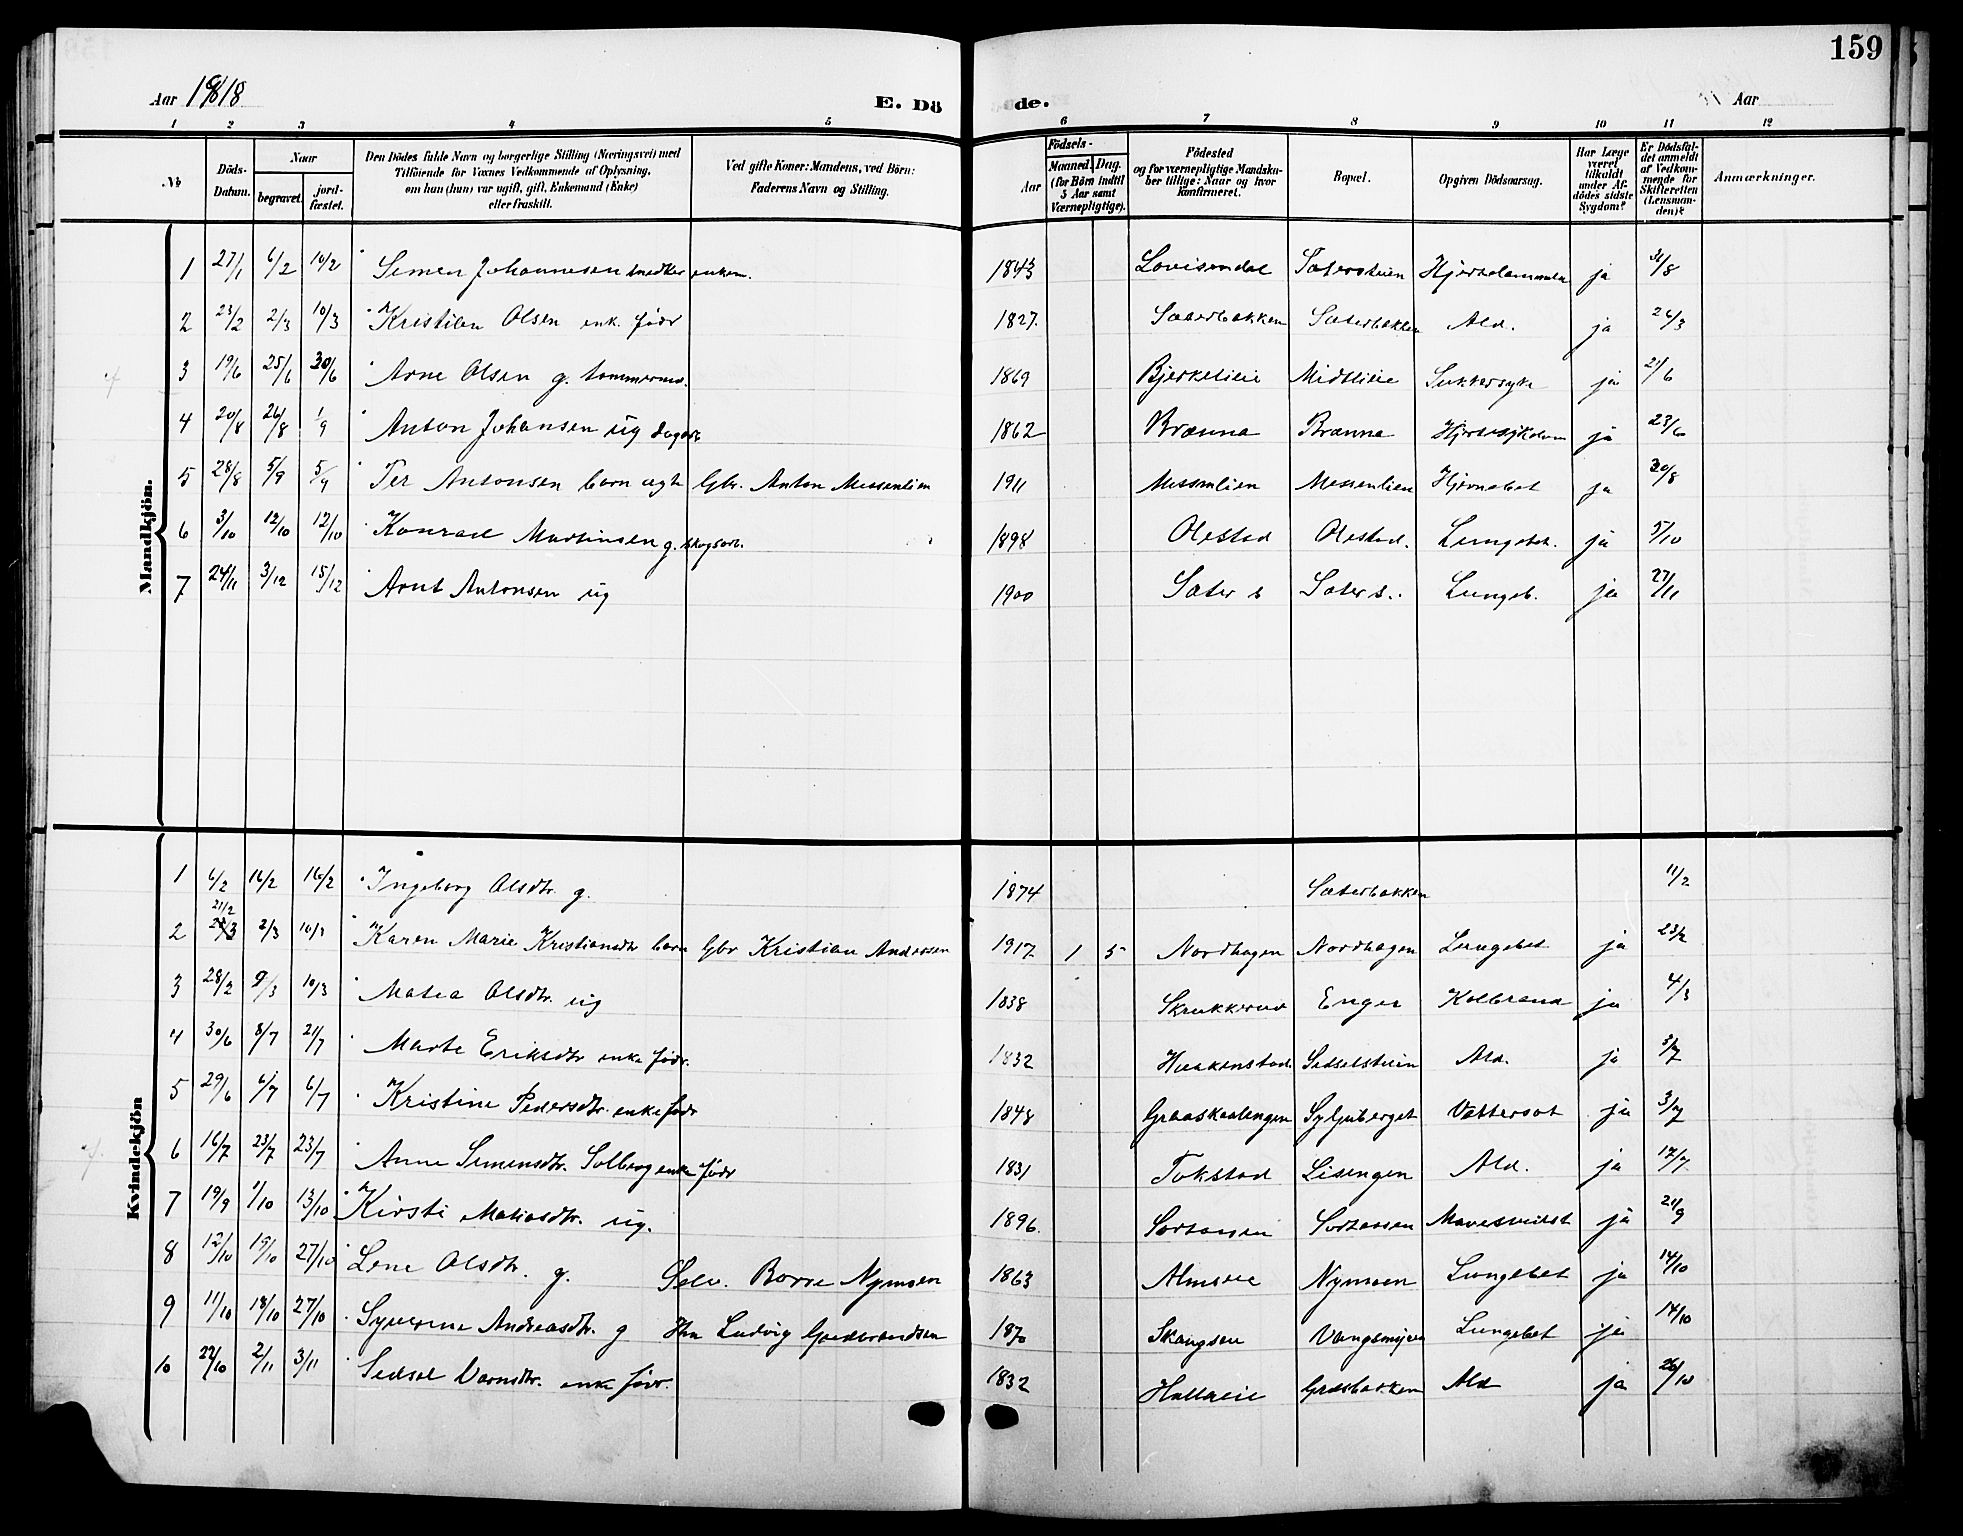 159
Aar 1918
E. Döde.
Aar
1 2 3 4 5 6 7 8 9 10 11 12
No
Döds-Datum.
Naar
begravet.
jord-fæstet.
Den Dödes fulde Navn og borgerlige Stilling (Næringsvei) med
Tilföiende for Voxnes Vedkommende af Oplysning,
om han (hun) var ugift, gift, Enkemand (Enke)
eller fraskilt.
Ved gifte Koner: Mandens, ved Börn:
Faderens Navn og Stilling.
Födsels-
Aar
Maaned. Dag.
(for Börn indtil
5 Aar samt
Værnepligtige).
Födested
og for værnepligtige Mandsku-
ber tillige: Naar og hvor
konfirmeret.
Bopæl.
Opgiven Dödsaarsag.
Har Læge
været
tilkaldt
under Af-
dödes sidste
Sygdom?
Er Dödsfal-
det anmeldt
af Vedkom-
mende for
Skifteretten
(Lensman-
den)?
Anmærkninger.
Mandkjön.
1 27/1 6/2 10/2 Simen Johannesen snedker enkem. 1843 Lovisendal Sæterstuen ja 31/8
2 23/2 2/3 10/3 Kristian Olsen enk. födr 1827. Sæterbakken Sæterbakken Ald. ja 26/3
3 19/6 25/6 30/6 Arne Olsen g. tømmerm. 1869 Bjerkelieie Midtlieie Sukkersyke ja 21/6
4 20/8 26/8 1/9 Anton Johansen ug dagarb 1862 Brænna Brænna ja 23/6
5 28/8 5/9 5/9 Per Antonsen barn ægte Gbr. Anton Messenlien 1911 Messenlien Messenlien ja 30/8
6 3/10 12/10 12/10 Konrad Martinsen g. skogsarb. 1898 Olestad Olestad. Lungebet. ja 5/10
7 24/11 3/12 15/12 Arnt Antonsen ug 1900 Sæter b Sæter b. Lungeb. ja 27/11
Kvindekjön
1 6/2 16/2 16/2 Ingeborg Olsdtr. g. 1874 Sæterbakken 11/2
2 21/2 2/3 10/3 Karen Marie Kristiansdtr barn Gbr Kristian Andersen 1917 1 5 Nordhagen Nordhagen Lungebet ja 23/2
3 28/2 9/3 10/3 Matea Olsdtr. ug 1838 Skrukkerud Enger Kolbrand ja 4/3
4 30/6 8/7 21/7 Marte Eriksdtr enke födr. 1832 Haakenstad Ald. ja 5/7
5 29/6 6/7 6/7 Kristine Pedersdtr. enke födr 1848 Graaskaalengen Syljuberget Vattersot ja 3/7
6 16/7 23/7 23/7 Anne Simensdtr. Solberg enke födr 1831 Tokstad Lisengen Ald. ja 17/7
7 19/9 1/10 13/10 Kirsti Matiasdtr. ug. 1896. ja 21/9
8 12/10 19/10 27/10 Lene Olsdtr. g. Selv. Borre Nymoen 1863 Almseie Nymoen Lungebet ja 14/10
9 11/10 18/10 27/10 Syverine Andreasdtr. g Hm Ludvig Gudbrandsen 1870 Vangsmyren Lungebet ja 14/10
10 22/10 2/11 3/11 Sidsel enke födr. 1832 Græsbakken Ald ja 26/10